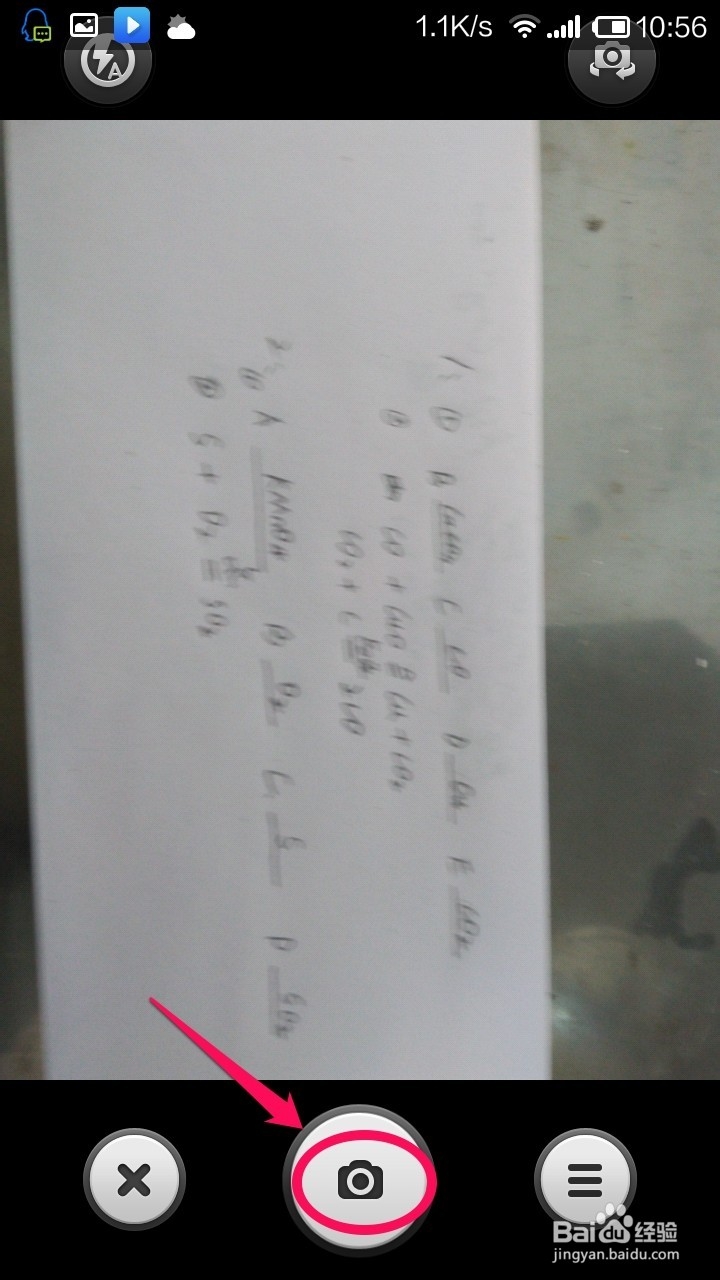 1.1K/s 10:56
1、① B CaCO3 C CO D Cu E CO2
② CO + CuO Cu + CO2
CO2 + C 2CO
2、① A KMnO4 B O2 C S D SO2
② S + O2 SO2
Baidu 经验
jingyan.baidu.com